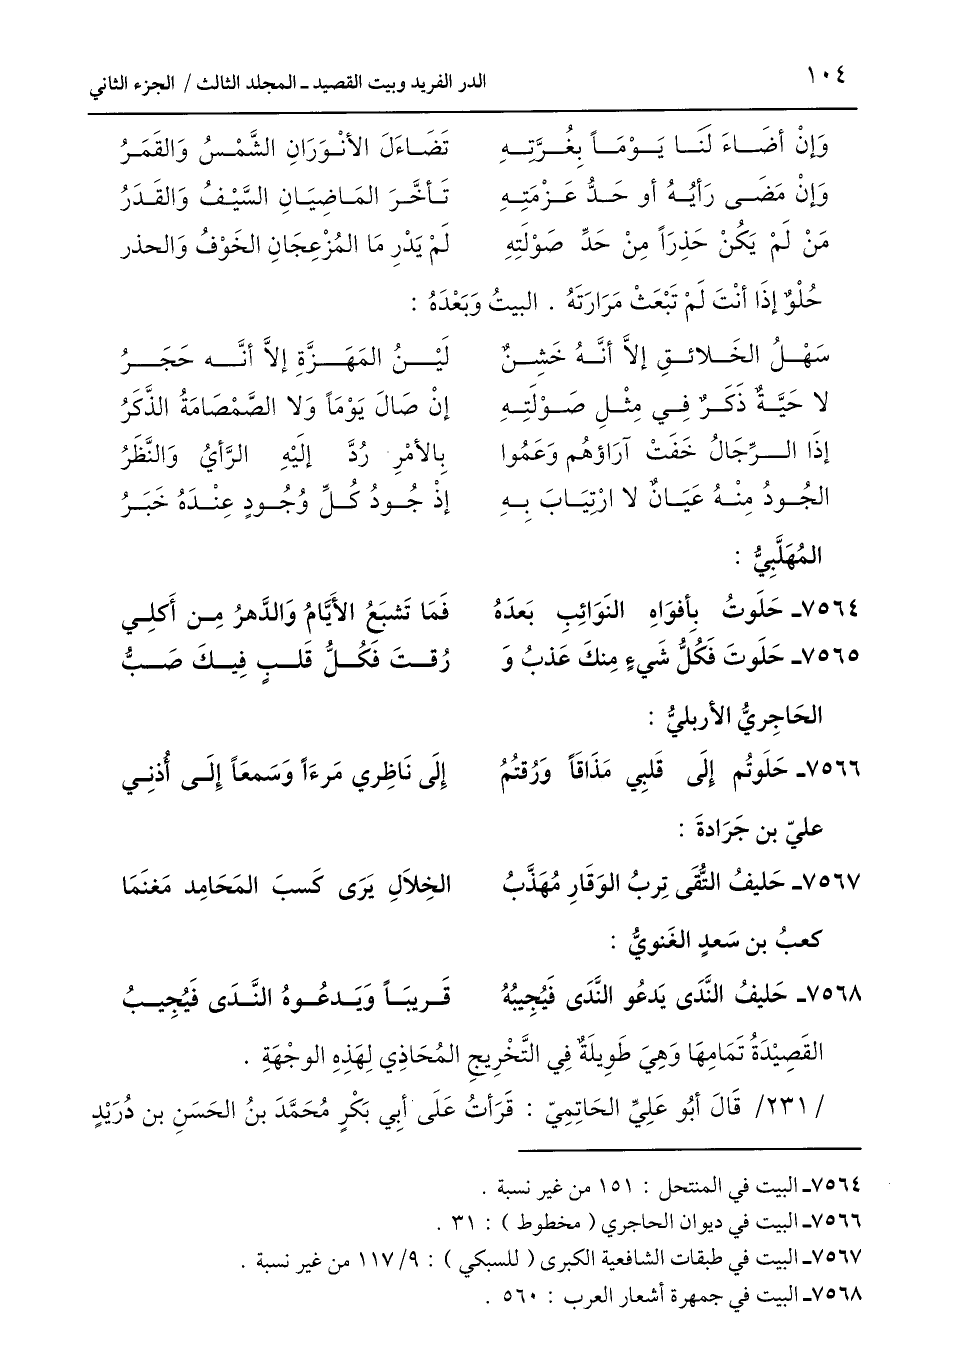 ١٠٤ الدر الفريد وبيت القصيد ـ المجلد الثالث / الجزء الثاني
وَإِنْ أَضَـاءَ لَنَـا يَـوْمَـاً بِغُـرَّتِـهِ تَضَـاءَلَ الأَنْـوَرَانِ الشَّمْـسُ وَالقَمَـرُ
وَإِنْ مَضَـى رَأيُـهُ أو حَـدُّ عَـزْمَتِـهِ تَـأخَّـرَ المَـاضِيَـانِ السَّيْـفُ وَالقَـدَرُ
مَنْ لَمْ يَكُنْ حَذِرَاً مِنْ حَدِّ صَوْلَتِهِ لَمْ يَدْرِ مَا المُزْعِجَانِ الخَوْفُ وَالحذر
حُلْوٌ إِذَا أنْتَ لَمْ تَبْعَثْ مَرَارَتَهُ . البيتُ وَبَعْدَهُ :
سَهْـلُ الخَـلائـقِ إلاَّ أنَّـهُ خَشِـنٌ لَيْـنُ المَهَـزَّةِ إلاَّ أنَّـه حَجَـرُ
لا حَيَّـةٌ ذَكَـرٌ فِـي مِثْـلِ صَـوْلَتِـهِ إِنْ صَالَ يَوْمَاً وَلا الصَّمْصَامَةُ الذَّكَرُ
إِذَا الـرِّجَالُ خَفَتْ آرَاؤهُم وَعَمُوا بِالأَمْرِ رُدَّ إِلَيْهِ الرَّأيُ وَالنَّظَرُ
الجُودُ مِنْـهُ عَيَـانٌ لا ارْتِيَـابَ بِـهِ إِذْ جُـودُ كُـلِّ وُجُـودٍ عِنْـدَهُ خَبَـرُ
المُهَلَّبِيُّ :
٧٥٦٤ـ حَلَوتُ بأفوَاهِ النَوائِبِ بَعدَهُ فَمَا تَشبَعُ الأَيَّامُ وَالدَّهرُ مِـن أَكلِـي
٧٥٦٥ـ حَلَوتَ فَكُلُّ شَيءٍ مِنكَ عَذبُ وَ رُقـتَ فَكُـلُّ قَلـبٍ فِيـكَ صَـبُّ
الحَاجِريُّ الأربليُّ :
٧٥٦٦ـ حَلَوتُم إِلَى قَلبِي مَذَاقَاً وَرُقتُمُ إِلَى نَاظِرِي مَرءَاً وَسَمعَاً إِلَـى أُذنِـي
عليّ بن جَرَادةَ :
٧٥٦٧ـ حَليفُ التُّقَى تِربُ الوَقارِ مُهَذَّبُ الخِلاَلِ يَرَى كَسبَ المَحَامِدِ مَغنَمَا
كعبُ بن سَعدٍ الغَنويُّ :
٧٥٦٨ـ حَليفُ النَّدَى يَدعُو النَّدَى فَيُجِيبُهُ قَـرِيبَـاً وَيَـدعُـوهُ النَّـدَى فَيُجِيـبُ
القَصِيْدَةُ تَمَامِهَا وَهِيَ طَوِيلَةٌ فِي التَّخْرِيجِ المُحَاذِي لِهَذِهِ الوجْهَةِ .
/ ٢٣١/ قَالَ أبُو عَلِيِّ الحَاتِمِيّ : قَرَأتُ عَلَى أبي بَكْرٍ مُحَمَّدَ بنُ الحَسَنِ بن دُرَيْدٍ
٧٥٦٤ـ البيت في المنتحل : ١٥١ من غير نسبة .
٧٥٦٦ـ البيت في ديوان الحاجري ( مخطوط ) : ٣١ .
٧٥٦٧ـ البيت في طبقات الشافعية الكبرى ( للسبكي ) : ٩/ ١١٧ من غير نسبة .
٧٥٦٨ـ البيت في جمهرة أشعار العرب : ٥٦٠ .